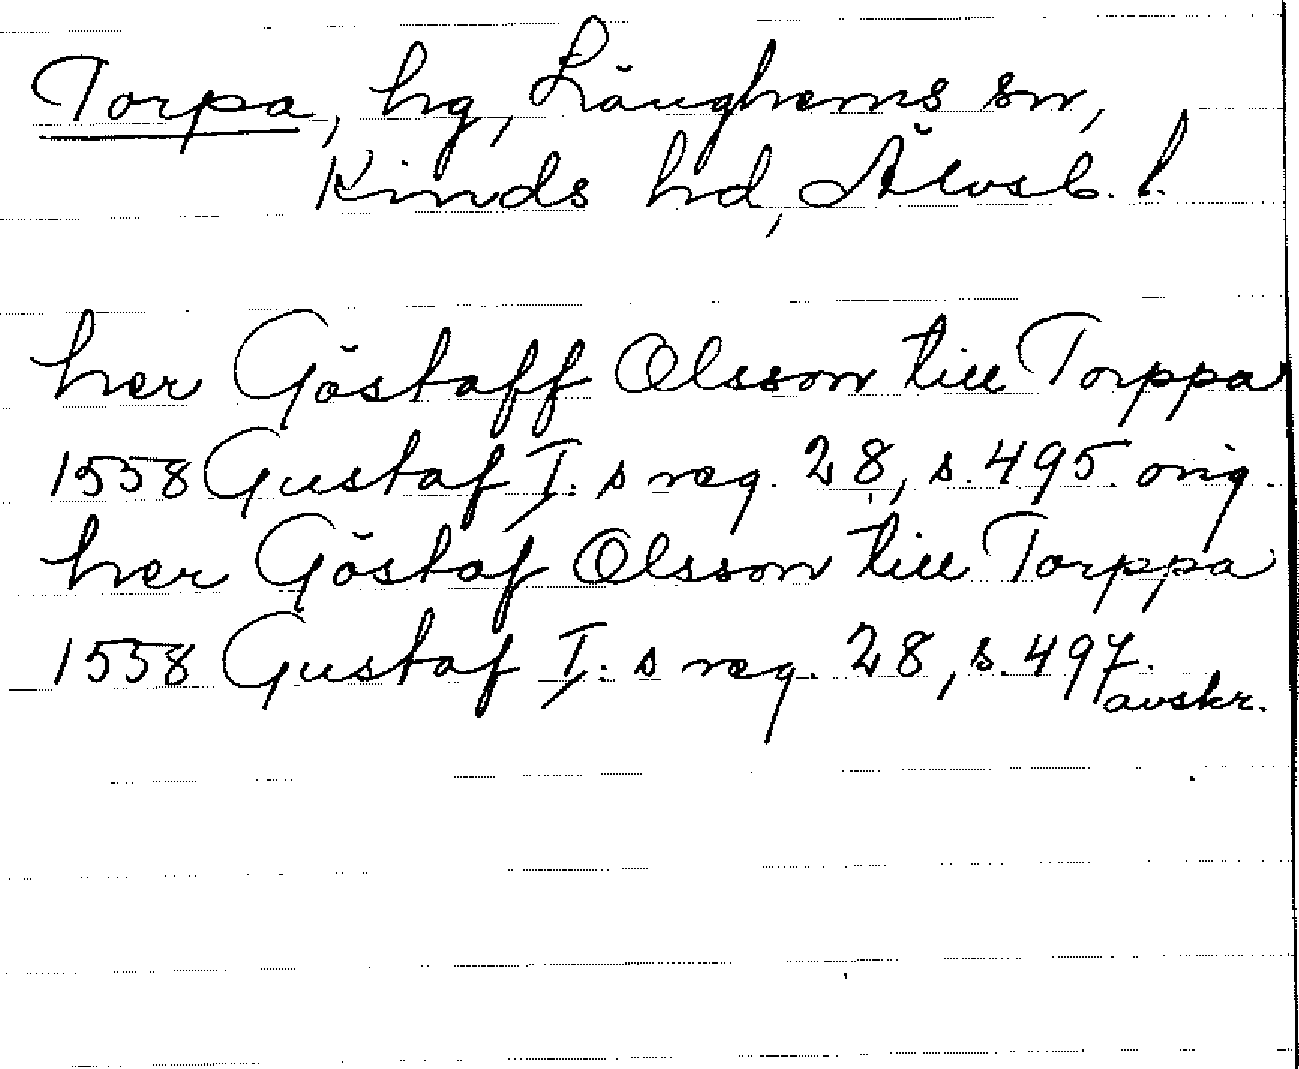 Torpa, hg, Länghems sn,
Kinds hd, Älvsb. l.
her Göstaff Olsson till Torppa
1558 Gustaf I:s reg. 28, s. 495. orig.
her Göstaf Olsson till Torppa
1558 Gustaf I:s reg. 28, s. 497.
avskr.